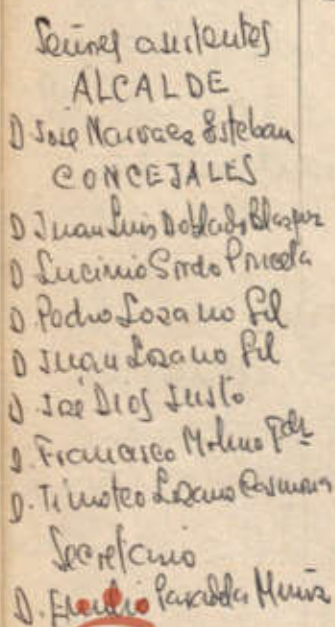 Señores asistentes
ALCALDE
D José Narvaez Esteban
CONCEJALES
D Juan Luis Doblado Blazquez
D Lucinio Sordo
D. Pedro Lozano Gil
D Juan Lozano Gil
D. José Dios Justo
D. Francisco Molino Fdz
D. Timoteo Lozano
Secretario
D. Emilio Muñoz